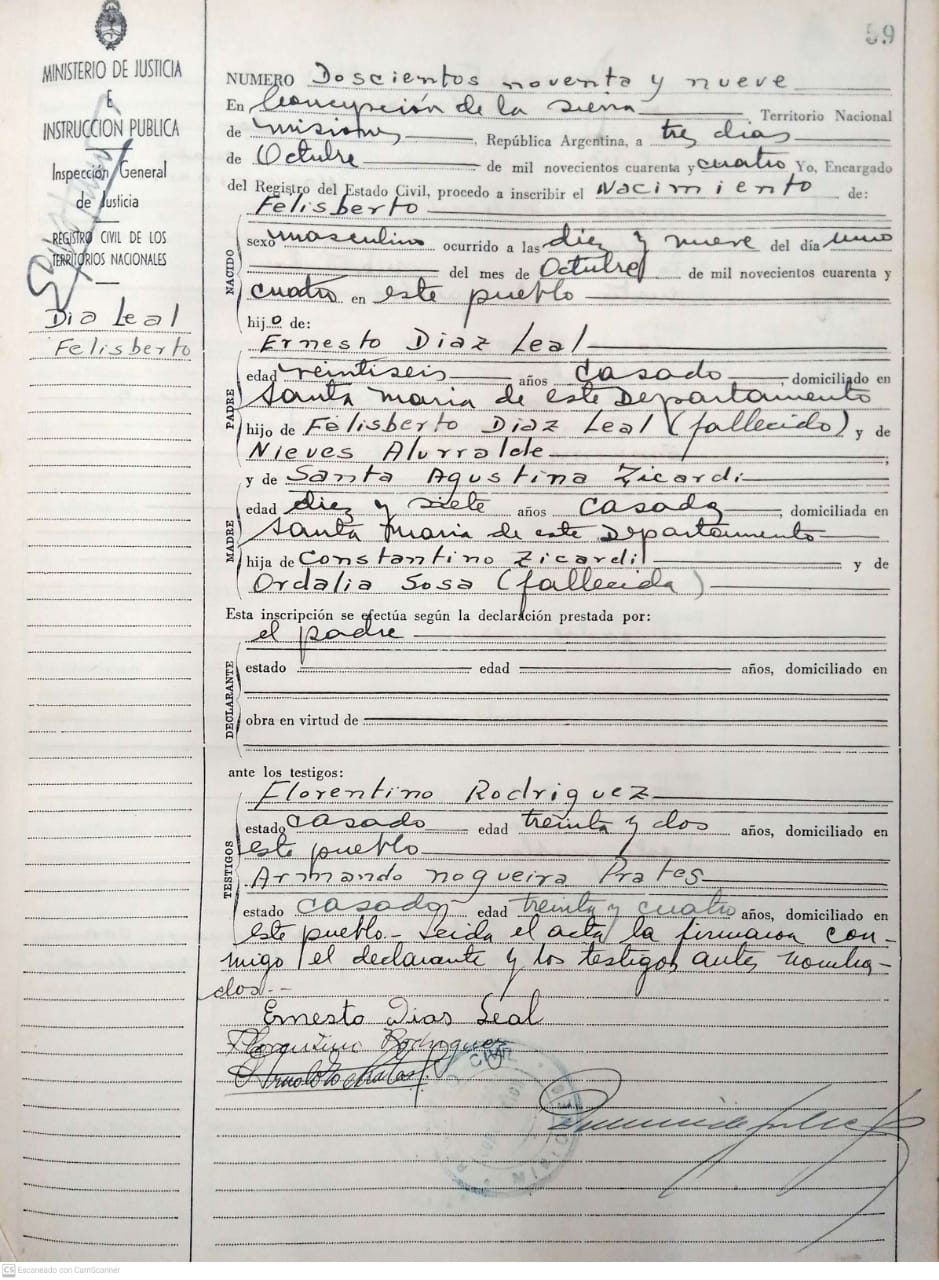 59
MINISTERIO DE JUSTICIA
E
INSTRUCCION PUBLICA
Inspección General
de Justicia
REGISTRO CIVIL DE LOS
TERRITORIOS NACIONALES
Dia Leal
Felisberto
NUMERO Doscientos noventa y nueve
En Concepción de la Sierra, Territorio Nacional
de Misiones, República Argentina, a tres dias
de Octubre de mil novecientos cuarenta y cuatro Yo, Encargado
del Registro del Estado Civil, procedo a inscribir el Nacimiento de:
Felisberto
NACIDO
sexo masculino ocurrido a las diez y nueve del día uno
del mes de Octubre de mil novecientos cuarenta y
cuatro en este pueblo
hijo de:
Ernesto Diaz Leal
PADRE
edad veintiseis años casado, domiciliado en
Santa Maria de este Departamento
hijo de Felisberto Diaz Leal (fallecido) y de
Nieves Alurralde;
y de Santa Agustina Zicardi
MADRE
edad diez y siete años casada, domiciliada en
Santa Maria de este Departamento
hija de Constantino Zicardi y de
Ordalia Sosa (fallecida)
Esta inscripción se efectúa según la declaración prestada por:
el padre
DECLARANTE
estado edad años, domiciliado en
obra en virtud de
ante los testigos:
Florentino Rodriguez
TESTIGOS
estado casado edad treinta y dos años, domiciliado en
este pueblo
Armando Nogueira Prates
estado casado edad treinta y cuatro años, domiciliado en
este pueblo.- Leida el acta la firmaron con-
migo el declarante y los testigos antes nombra-
dos.-
Ernesto Dias Leal
Florentino Rodriguez
CS Escaneado con CamScanner